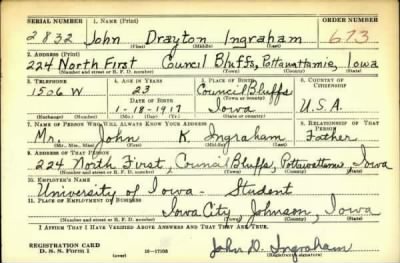 SERIAL NUMBER 1. NAME (Print) ORDER NUMBER
2832 John Drayton Ingraham 673
(First) (Middle) (Last)
2. ADDRESS (Print)
224 North First Council Bluffs, Pottawattamie, Iowa
(Number and street or R. F. D. number) (Town) (County) (State)
3. TELEPHONE 4. AGE IN YEARS 5. PLACE OF BIRTH 6. COUNTRY OF CITIZENSHIP
1506 W 23 Council Bluffs
(Town or county)
DATE OF BIRTH
1-18-1917 Iowa U.S.A.
(Exchange) (Number) (Mo.) (Day) (Yr.) (State or country)
7. NAME OF PERSON WHO WILL ALWAYS KNOW YOUR ADDRESS 8. RELATIONSHIP OF THAT PERSON
Mr. John K. Ingraham Father
(Mr., Mrs., Miss) (First) (Middle) (Last)
9. ADDRESS OF THAT PERSON
224 North First, Council Bluffs, Pottawattamie, Iowa
(Number and street or R. F. D. number) (Town) (County) (State)
10. EMPLOYER'S NAME
University of Iowa - Student
11. PLACE OF EMPLOYMENT OR BUSINESS
Iowa City, Johnson, Iowa
(Number and street or R. F. D. number) (Town) (County) (State)
I AFFIRM THAT I HAVE VERIFIED ABOVE ANSWERS AND THAT THEY ARE TRUE.
REGISTRATION CARD
D. S. S. Form 1 (over) John D. Ingraham